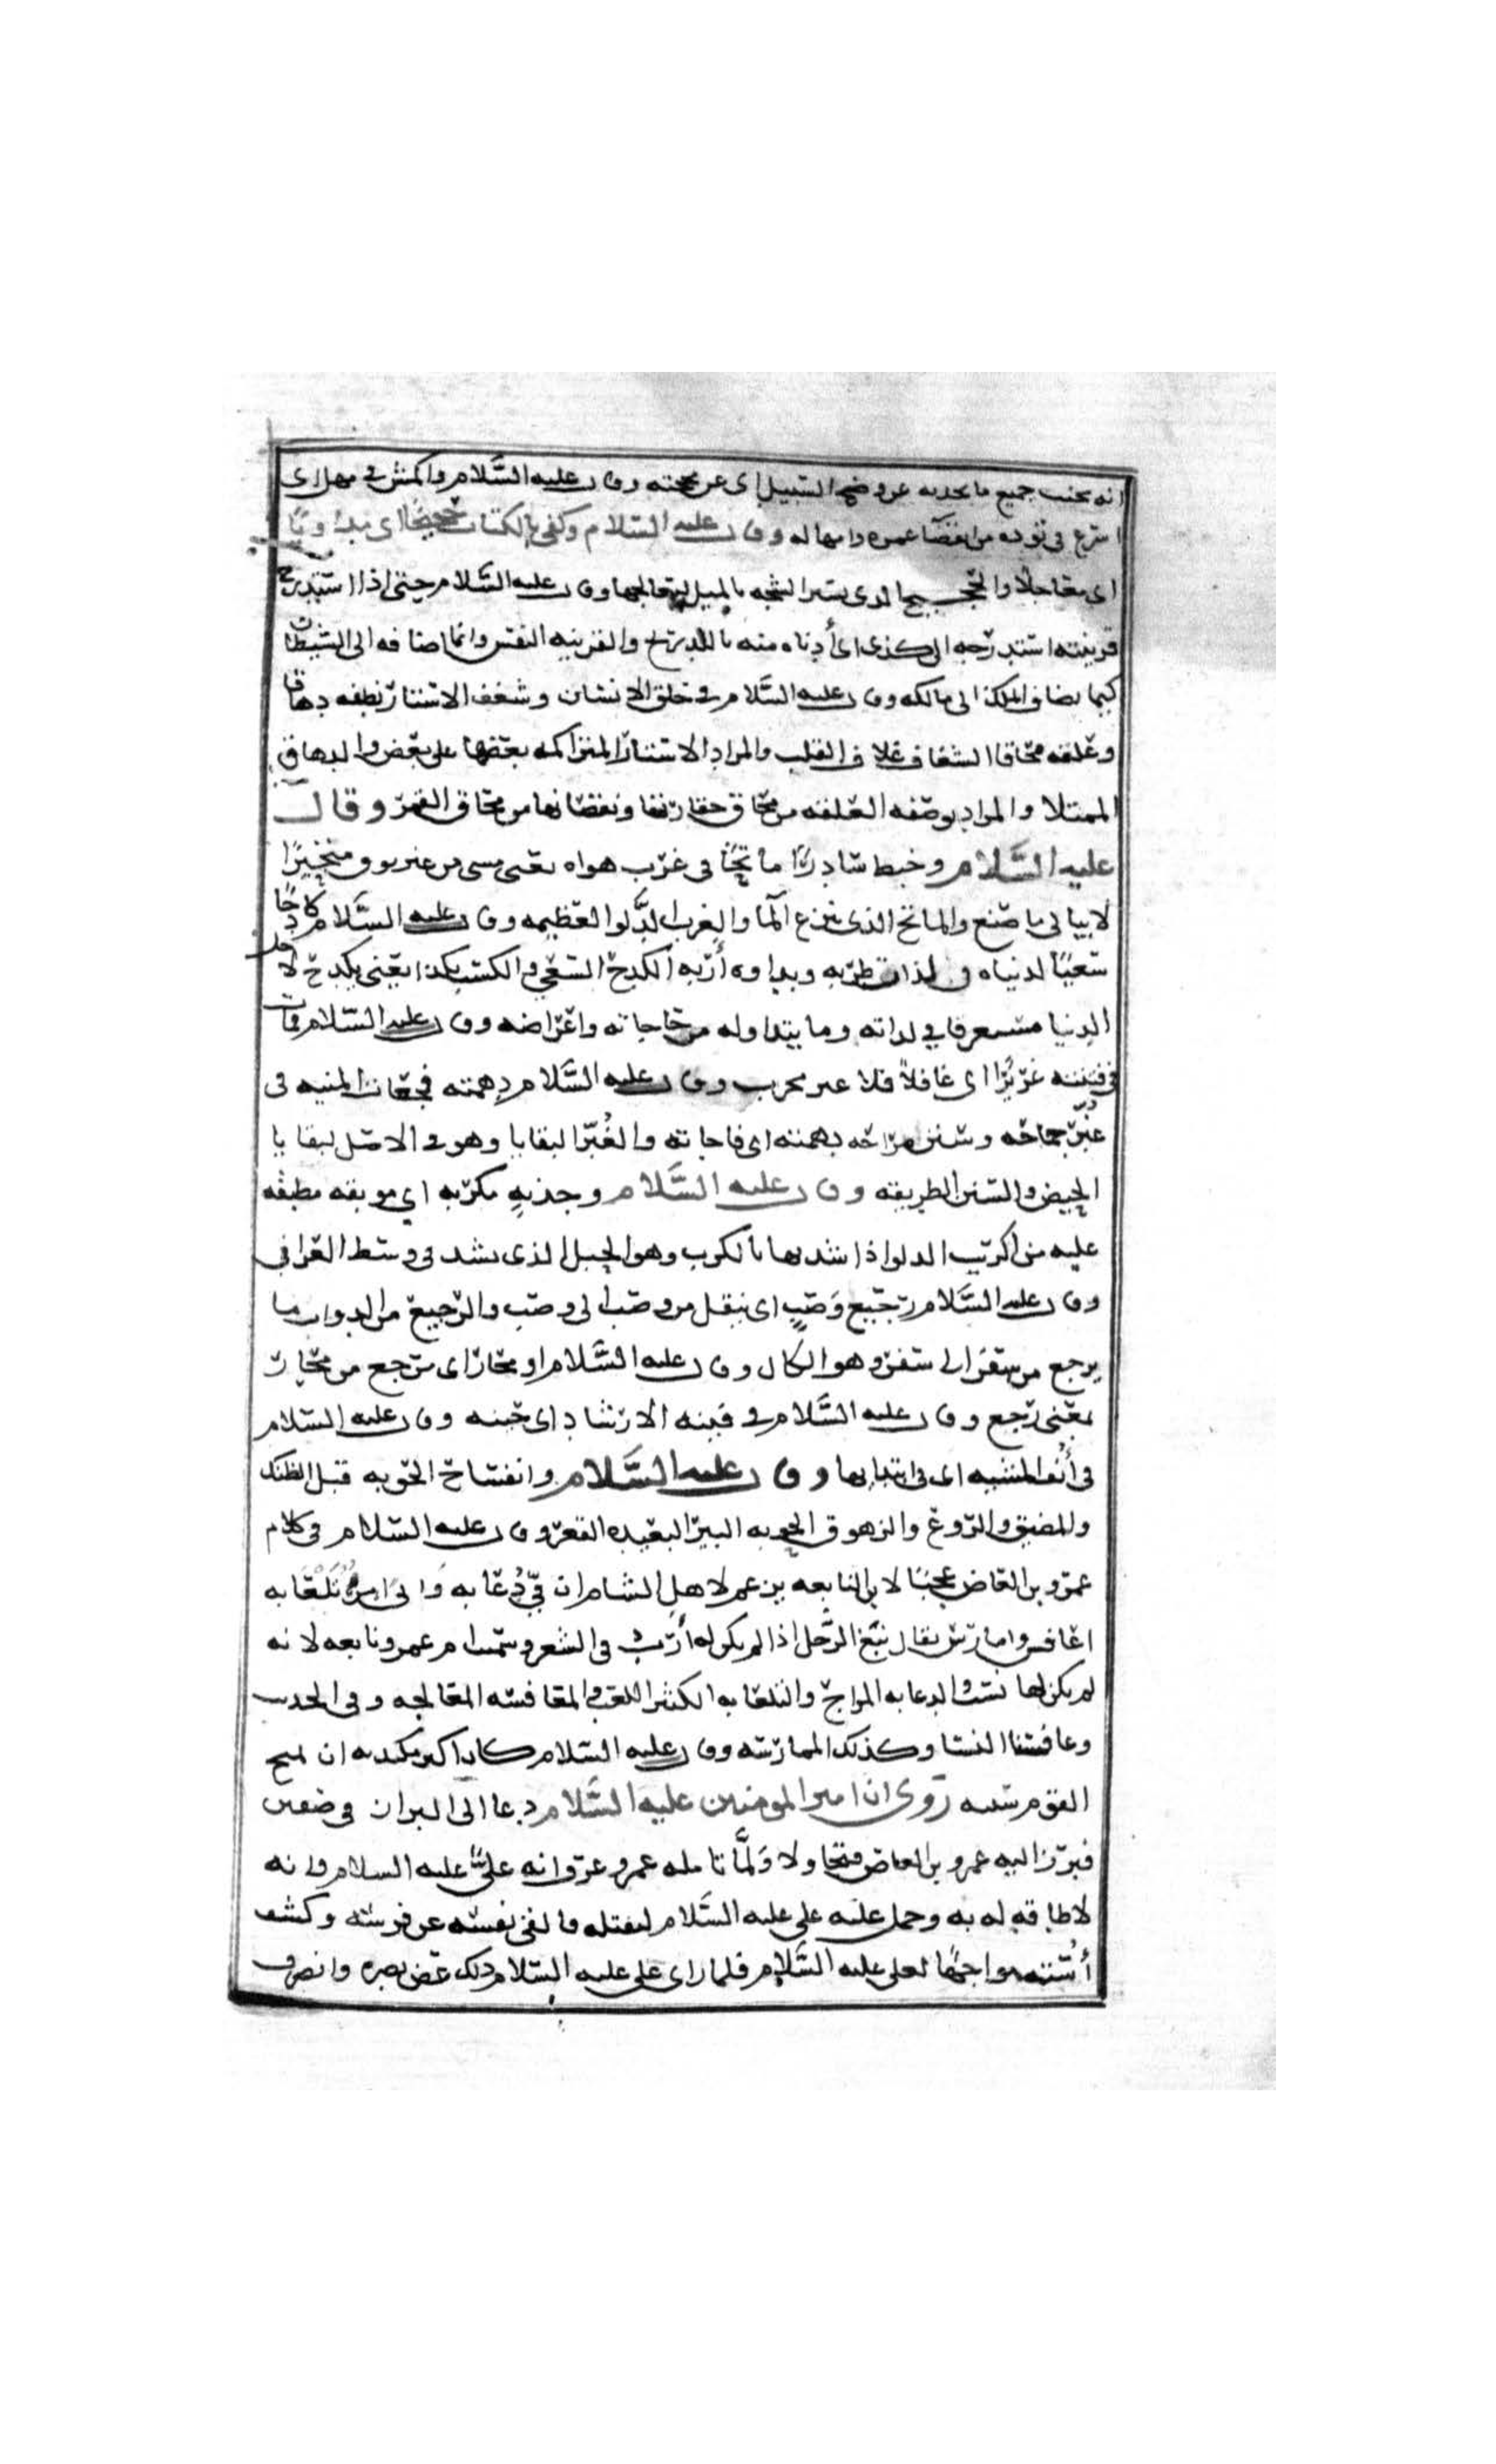 انه تجنب جميع ما يجذبه عن وضح السبيل اى عن محجته وقال عليه السَّلام واكمش فى مهل اى
اسرع فى تؤده من انقضآ عمره وامهاله وقال عليه السلام وكفى بالكتاب حجيجًا اى
اى معاجلًا والحجيج الذى يسبر الشجه بالميل ليعالجها وقال عليه السَّلام حتى اذا استدرج
قرينته استدرجه الى كذى اى أدناه منه بالتدريج والقرينه النفس وانما اضافه الى الشيطان
كما يضاف الملك الى مالكه وقال عليه السَّلام فى خلق الانسان وشغف الاستار نطفه دهاقا
وعلقه محاقا الشغاف غلاف القلب والمراد الاستار المتراكمه بعضها على بعض والدهاق
الممتلا والمراد بوصفه العلقه من محاق حقارتها ونقصانها من محاق القمر وقال
عليه السَّلام وخبط سادرًا ماتحًا فى غرب هواه يعنى مسى من غير متحيرًا
لا يبالى ما صنع والماتح الذى ينزع المآ والغرب الدَّلو العظيمه وقال عليه السَّلام كادحًا
سعيًا لدنياه فى لذات طربه وبدوات أربه الكدح السعى والكسب يعنى يكدح لاجل
الدنيا فى لذاته وما يتداوله من حاجاته واغراضه وقال عليه السَّلام فمات
فى فتنته غريرًا اى غافلًا وقال عليه السَّلام دهمته فجعات المنيه فى
غُبّر جماحه وسنن مراحه دهمته اى فاجاته والغُبّر البقايا وهو فى الاصل لبقايا
الحيض والسنن الطريقه وقال عليه السَّلام وجذبهٍ مكربه اى موبقه مطبقه
عليه من اكرب الدلو اذا شدها بالكرب وهو الحبل الذى يشد فى وسط العراقى
وقال عليه السَّلام رجيع وَصَبٍ اى ينقل من وصب الى وصب والرجيع من الدواب ما
يرجع من سفر الى سفر وهو الكال وقال عليه السَّلام او محار اى مرجع من حار
بمعنى رجع وقال عليه السَّلام فى فينه الارتشاد اى حينه وقال عليه السلام
فى أنف المشيه اى فى ابتدايها وقال عليه السَّلام وانفساح الحوبه قبل الضنك
والمضيق والروع والزهوق الحوبه البير البعيده القعر وقال عليه السَّلام فى كلام
عمرو بن العاص عجبًا لابن النابغه يزعم لاهل الشام ان فىّ دُعابه وانى امرؤ تلعابه
اعافس وامارس يقال نبغ الرَّجل اذا لم يكن له أرث فى الشعر وسمت ام عمرو نابغه لانه
لم يكن لها نسب الدعابه المزاح والتلعابه الكثير اللعب والمعافسه المعالجه وفى الحديث
وعافسنا النسا وكذلك الممارسه وقال عليه السَّلام كان اكبر مكيدته ان يمنح
القوم سبته روى ان امير المومنين عليه السَّلام دعا الى البراز فى صفين
فبرز اليه عمرو بن العاص ولمَّا تامله عمرو عرف انه علىٌّ عليه السلام وانه
لا طاقه له به وحمل عليه على عليه السَّلام ليقتله فالقى نفسه عن فرسه وكشف
أُسته مواجهًا لعلى عليه السَّلام فلما راى على عليه السَّلام ذلك غض بصره وانصرف